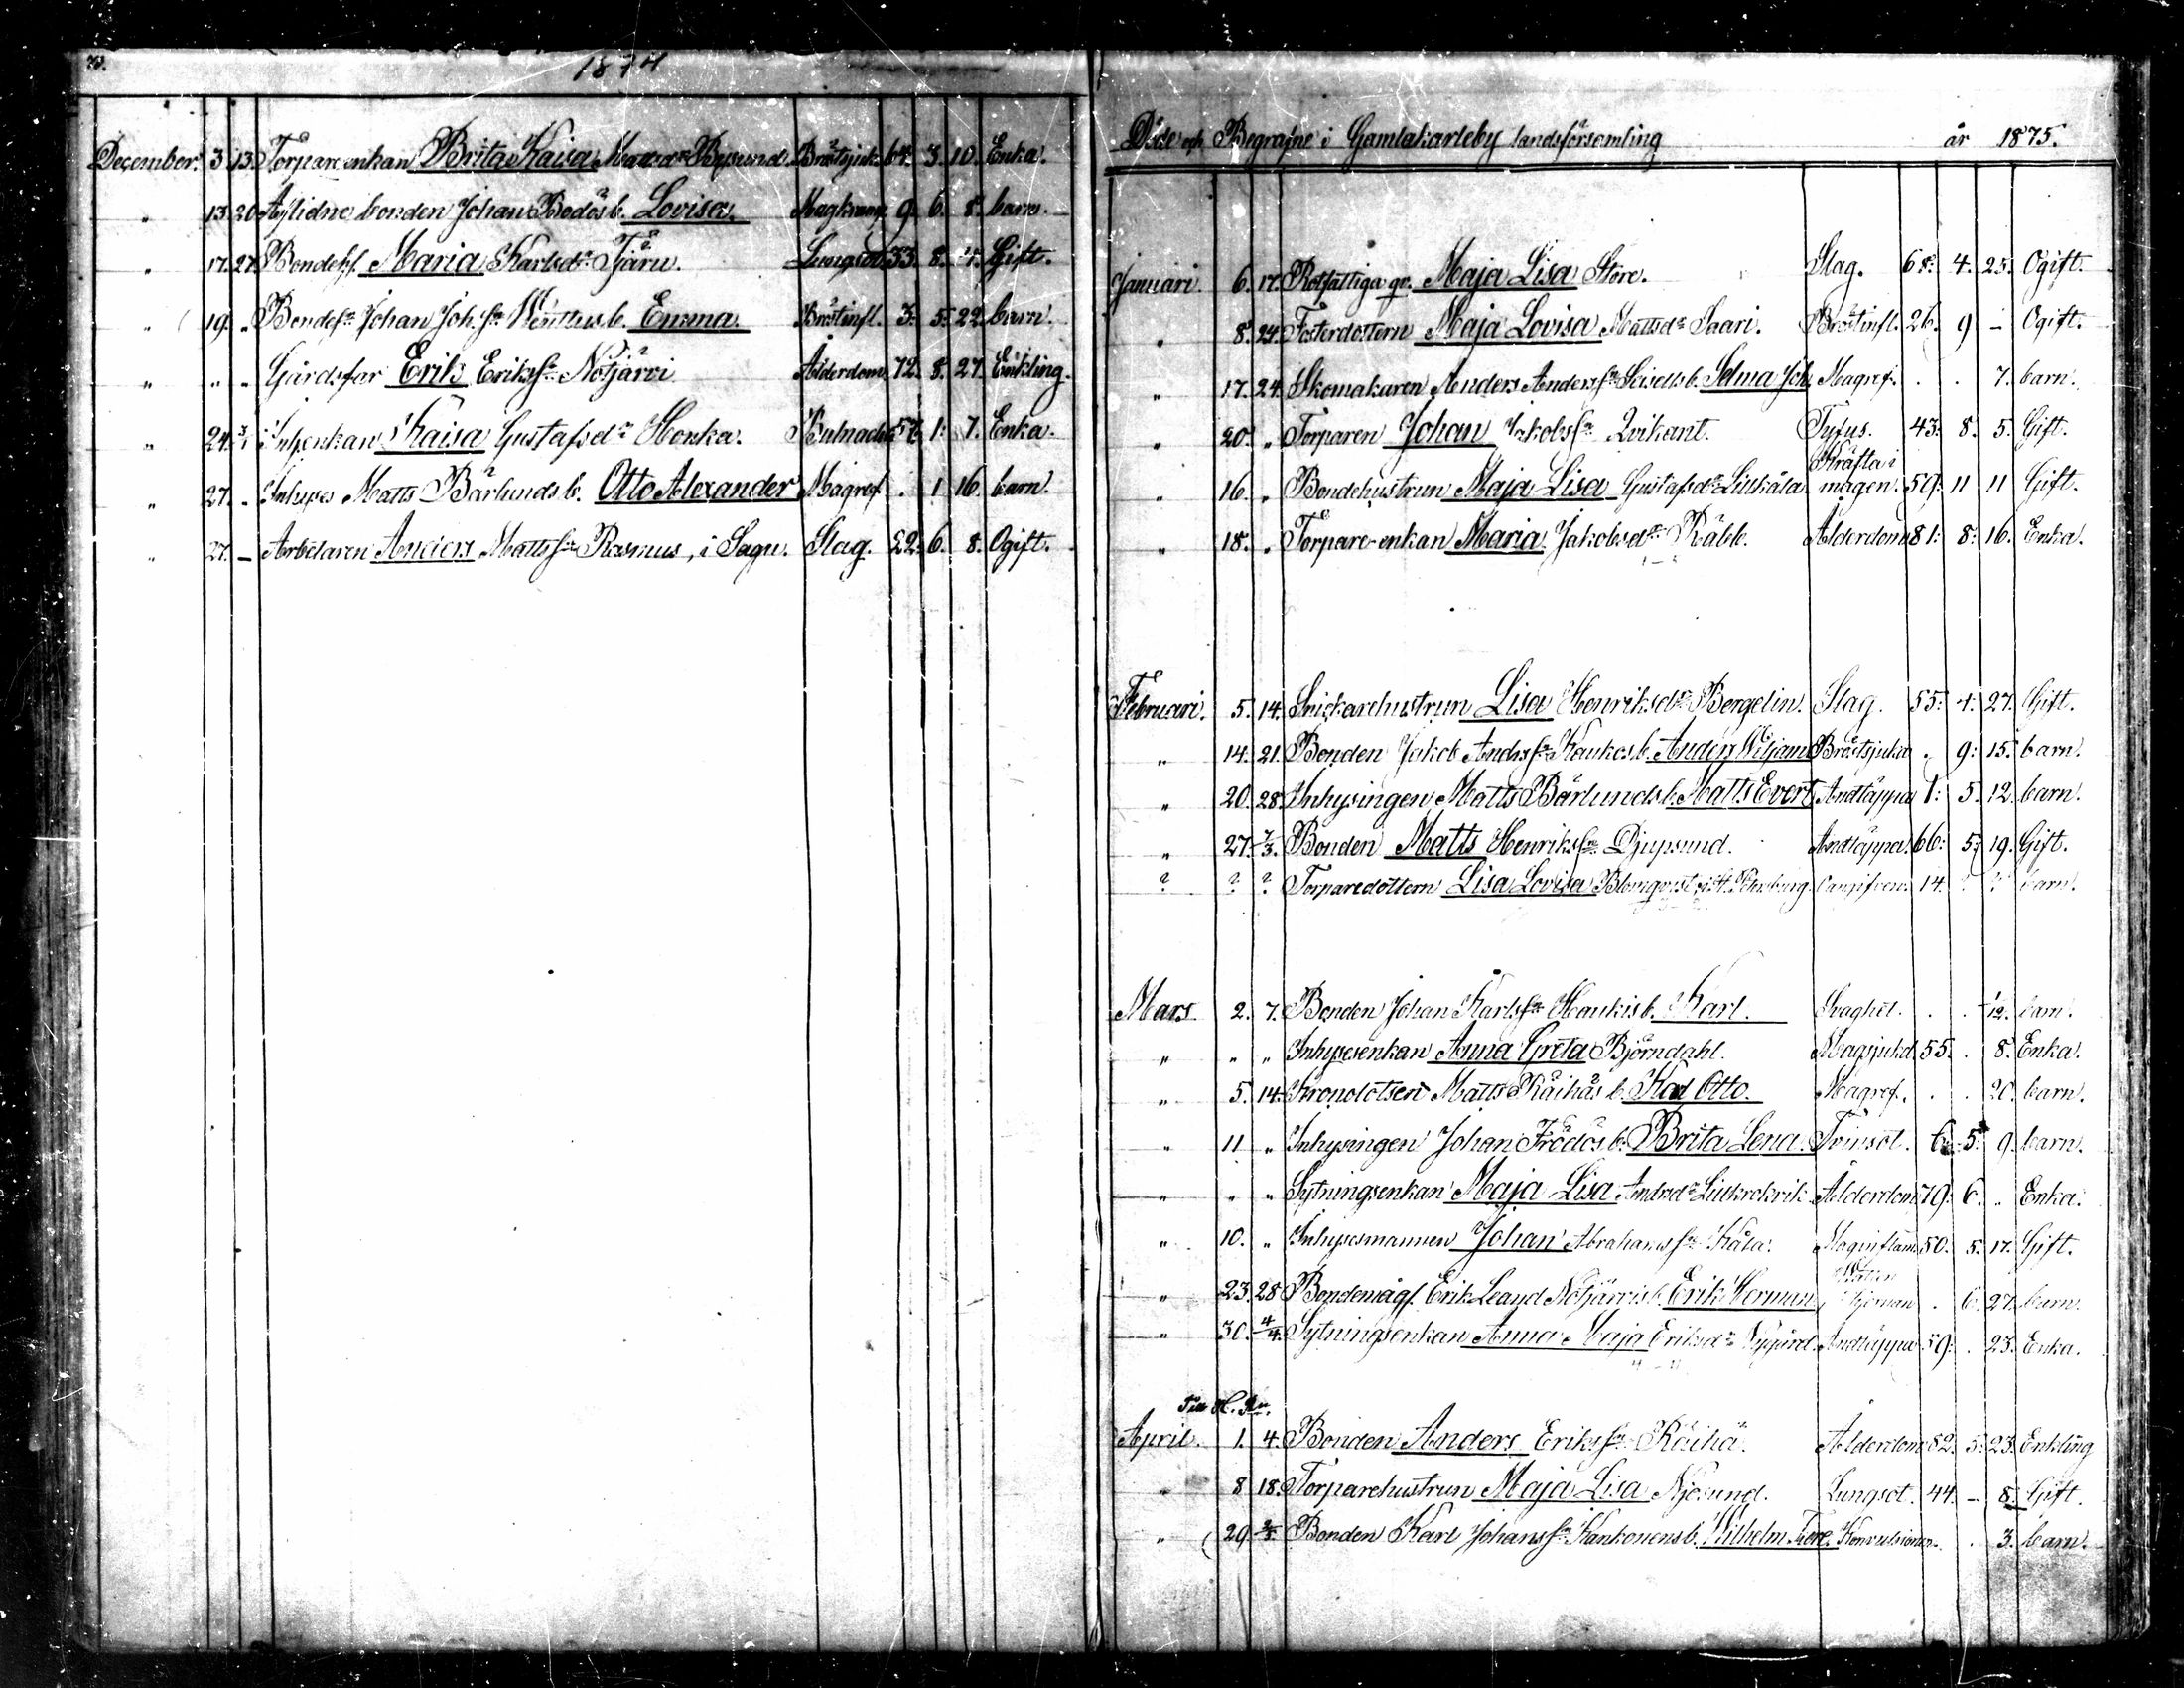 1874
December. 3. 13. Torpare enkan Brita Kaisa Mattsdr Bysund. Bröstsjuk. 64. 3. 10. Enka.
" 13. 20. Aflidne bonden Johan Bodös b. Lovisa. Magkramp 9. 6. 8. barn.
" 17. 27. Bondeh. Maria Karlsdr Tjäru. Lungsot. 33. 8. 4. Gift.
" 19. " Bondes. Johan Joh. sn b. Emma. Bröstinfl. 3. 5. 22. barn.
" " " Gårdsfar Erik Eriksn Nötjärvi Ålderdom. 72. 8. 27. Enkling.
" 24. 3/1 Inh.enkan Kaisa Gustafsdr Honka. 57. 1. 7. Enka.
" 27. " Inhyses Matts Bärlunds b. Otto Alexander Magref. . 1. 16. barn.
" 27. – Arbetaren Anders Mattssn Rasmus, i Sagu. Slag. 22. 6. 8. Ogift.
Döde och Begrafne i Gamlakarleby landsförsamling år 1875.
Januari. 6. 17. Rotfattiga qv. Maja Lisa Store. Slag. 68. 4. 25. Ogift.
" 8. 24. Fosterdottern Maja Lovisa Mattsdr Saari. Bröstinfl. 26. 9 – Ogift.
" 17. 24. Skomakaren Anders Anderssn b. Selma Joh. Magref. . . 7. barn.
" 20. " Torparen Johan Jakobssn Qvikant. Tyfus. 43. 8. 5. Gift.
" 16. " Bondehustrun Maja Lisa Gustafsdr Liukala Kräfta i magen. 59. 11 11 Gift.
" 18. " Torpare-enkan Maria Jakobsdr Räbb. Ålderdom 81. 8. 16. Enka.
Februari. 5. 14. Snickarehustrun Lisa Henriksdr Bergelin. Slag. 55. 4. 27. Gift.
" 14. 21. Bonden Jakob Anderssn Kaukos b. Anders Wiljam Bröstsjuka . 9. 15. barn.
" 20. 28. Inhysingen Matts Bärlunds b. Matts Evert Andtäppa 1. 5. 12. barn.
" 27. 7/3. Bonden Matts Henrikssn Djupsund. Andtäppa. 66. 5. 19. Gift.
? ? ? Torparedottern Lisa Lovisa Blomqvist i St. Petersburg. Oangifven. 14. ? ? barn.
Mars 2. 7. Bonden Johan Karlssn Hankis b. Karl. Svaghet. . . 1/2. barn.
" " " Inhysesenkan Anna Greta Björndahl. Magsjukd. 55. . 8. Enka.
" 5. 14. Kronolotsen Matts Räihäs b. Karl Otto. Magref. . . 20. barn.
" 11 " Inhysingen Johan Frödös b. Brita Lena. Tvinsot. 6. 5. 9. barn.
" " " Sytningsenkan Maja Lisa Andersdr Ålderdom 79. 6. " Enka.
" 10. " Inhysesmannen Johan Abrahamssn Kåla. Maginflam. 50. 5. 17. Gift.
" 23. 28. Bondemåg. Erik Leand. Nötjärvis b. Erik Herman Watten . 6. 27. barn.
" 30. 4/4. Sytningsenkan Anna Maja Eriksdr Nygård. Andtäppa 59. . 23. Enka.
April. 1. 4. Bonden Anders Erikssn Räihä. Ålderdom 82. 5. 23. Enkling
" 8 18. Torparehustrun Maja Lisa Njösund. Lungsot. 44. – 8. Gift.
" 29. 2/5. Bonden Karl Johanssn Kankonens b. Wilhelm Tore. Konvulsioner . . 3. barn.